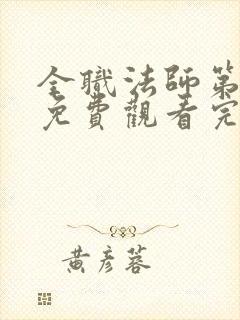 全職法師第
免費觀看完
黃彥蓉